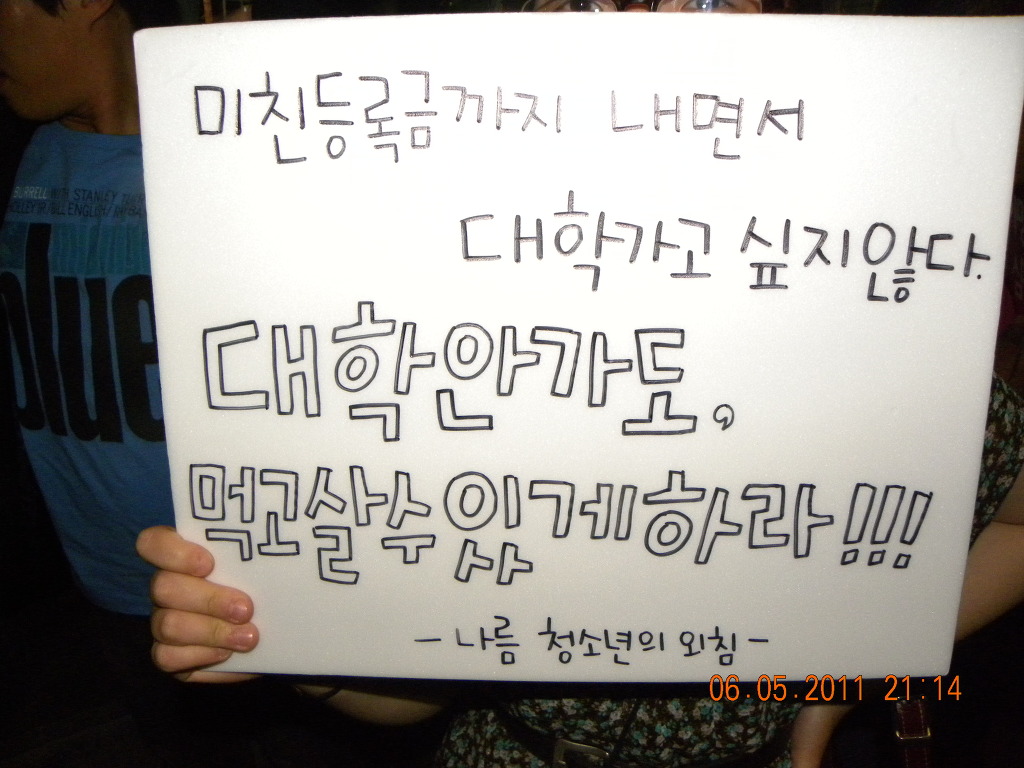 미친등록금까지 내면서
대학가고 싶지않다.
대학안가도,
먹고살수있게하라!!!
- 나름 청소년의 외침 -
BURRELL WITH STANLEY
blue
06.05.2011 21:14